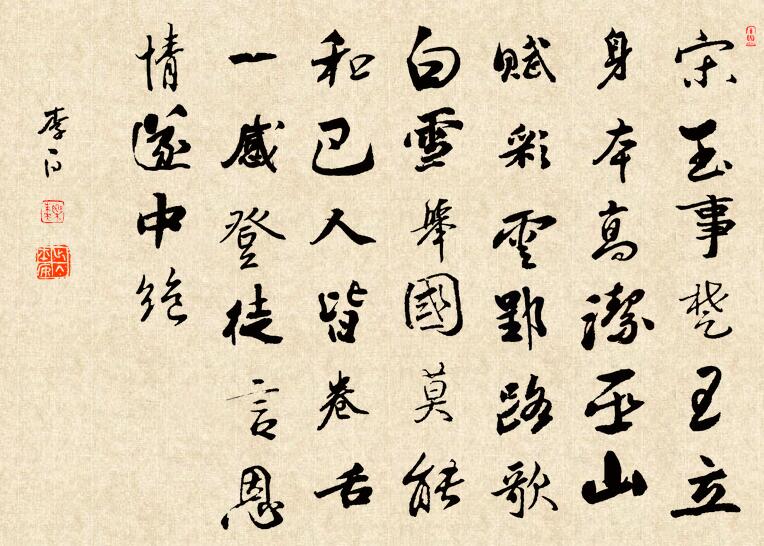 宋玉事楚王立
身本高潔巫山
賦彩雲郢路歌
白雪舉國莫能
和巴人皆卷舌
一感登徒言恩
情遂中絕
李白